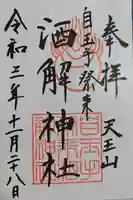 奉拝
天王山
自玉手祭来
酒解神社
令和三年十一月二十八日